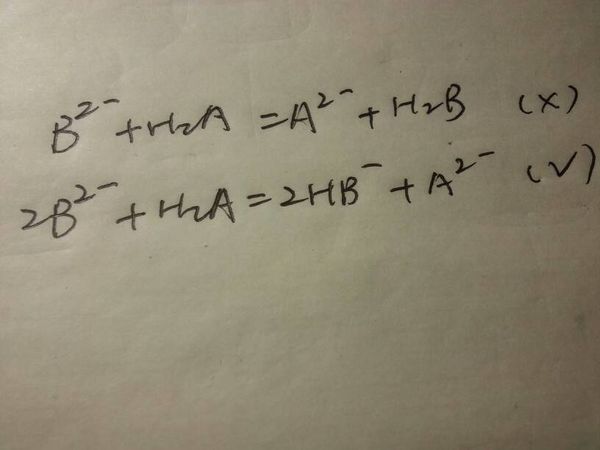 B²⁻ + H₂A = A²⁻ + H₂B (×)
2B²⁻ + H₂A = 2HB⁻ + A²⁻ (√)